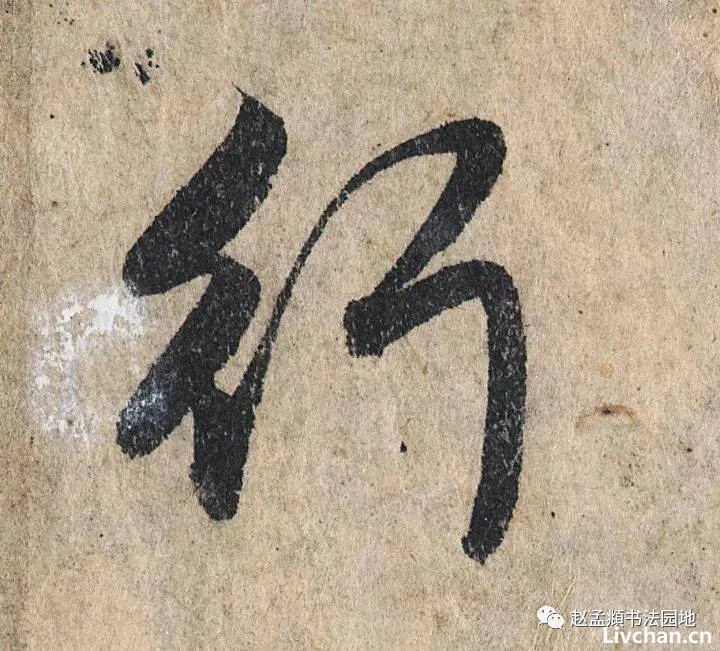 行
赵孟頫书法园地
Livchan.cn